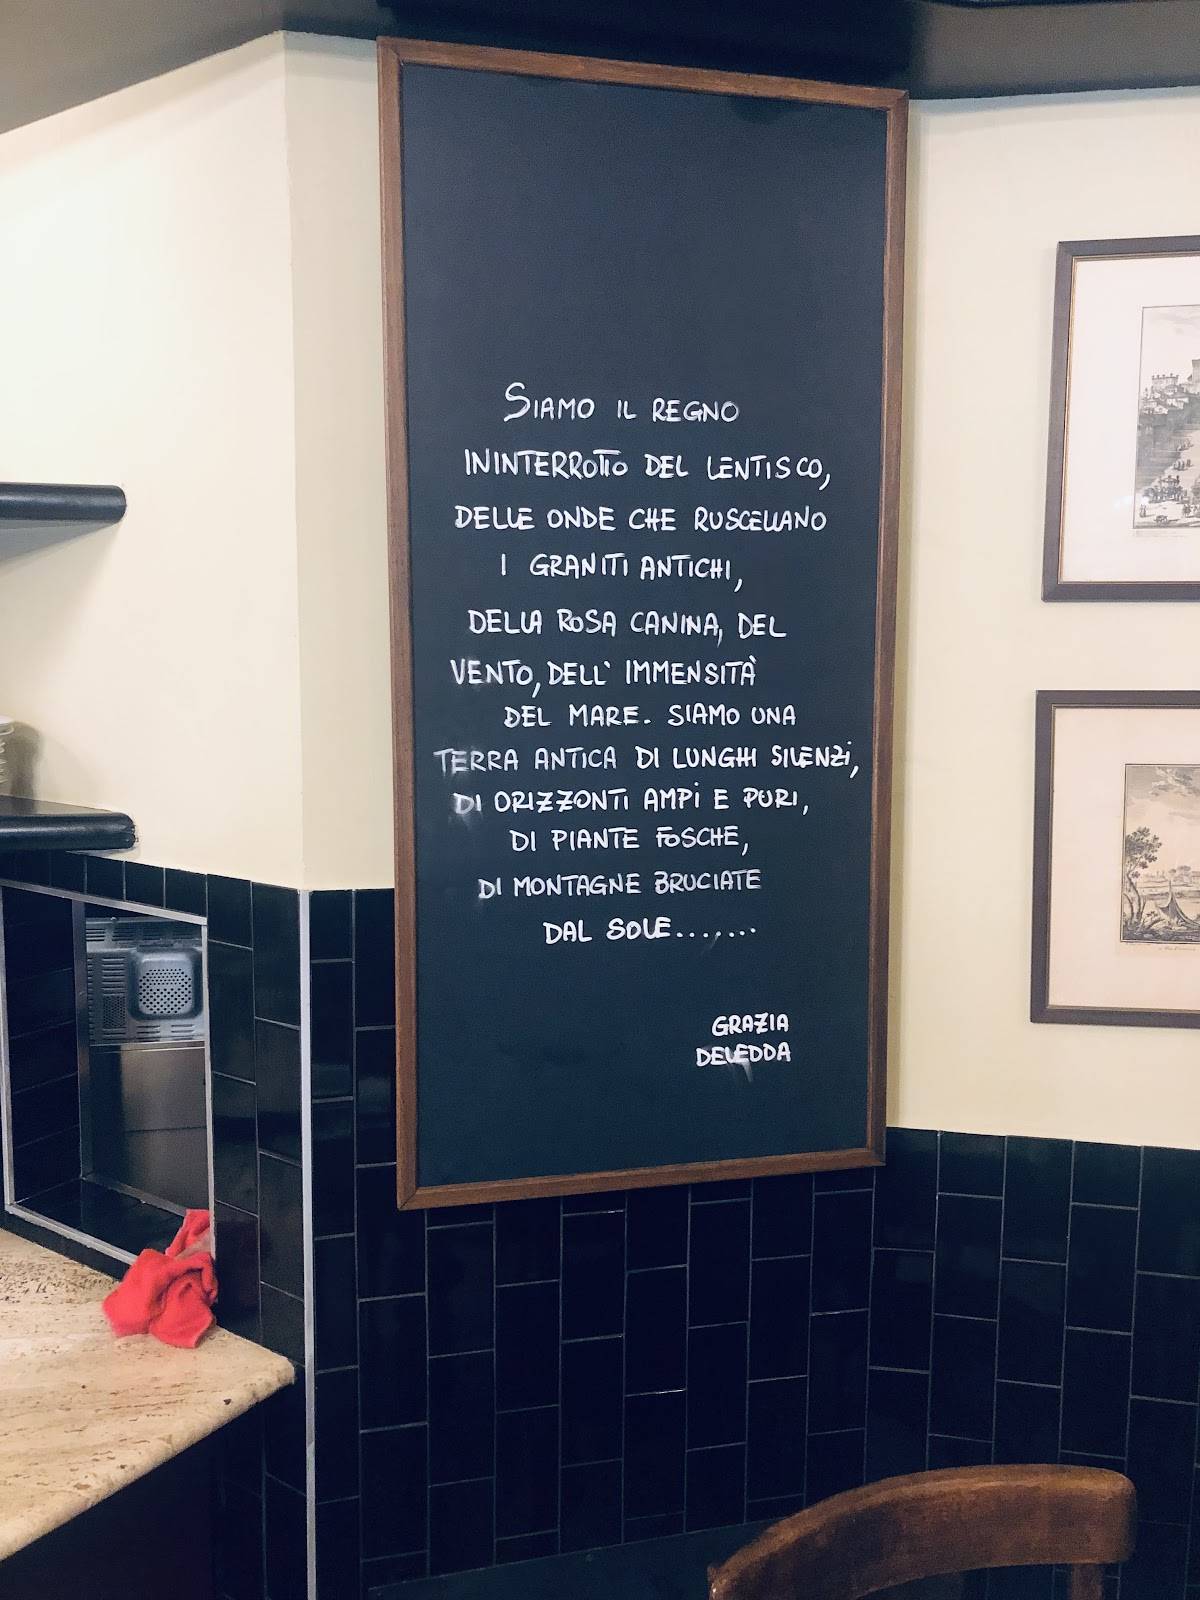 SIAMO IL REGNO
ININTERROTTO DEL LENTISCO,
DELLE ONDE CHE RUSCELLANO
I GRANITI ANTICHI,
DELLA ROSA CANINA, DEL
VENTO, DELL' IMMENSITÀ
DEL MARE. SIAMO UNA
TERRA ANTICA DI LUNGHI SILENZi,
DI ORIZZONTI AMPi E PURI,
DI PIANTE FOSCHE,
DI MONTAGNE BRUCIATE
DAL SOLE.......
GRAZIA
DELEDDA